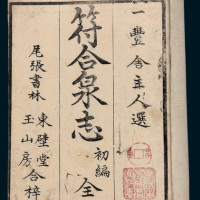 一豐舎主人選
符合泉志 初編 全
尾張書林 東壁堂
玉山房 合梓